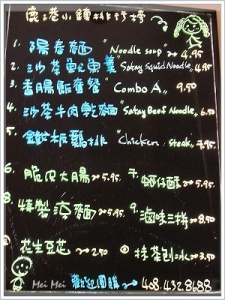 1. 陽春麵 "Noodle soup" 4.95
2. 沙茶魷魚羹 "Satay Squid Noodle" 4.95
3. 香腸飯套餐 Combo A 9.50
4. 沙茶牛肉乾麵 "Satay Beef Noodle" 6.50
5. 鐵板雞排 "Chicken Steak" 7.95
6. 脆皮大腸 5.95
7. 蚵仔酥 5.95
8. 特製涼麵 5.95
9. 滷味三拼 8.50
花生豆花 2.50
抹茶刨冰 3.50
Mei Mei 歡迎團購 408.432.8688